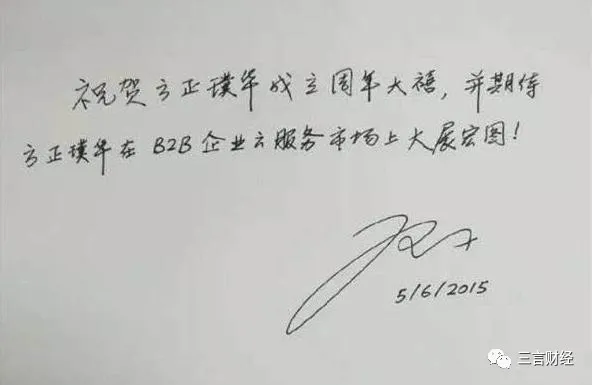 祝贺方正璞华成立周年大禧，并期待
方正璞华在B2B企业云服务市场上大展宏图！
5/6/2015
三言财经